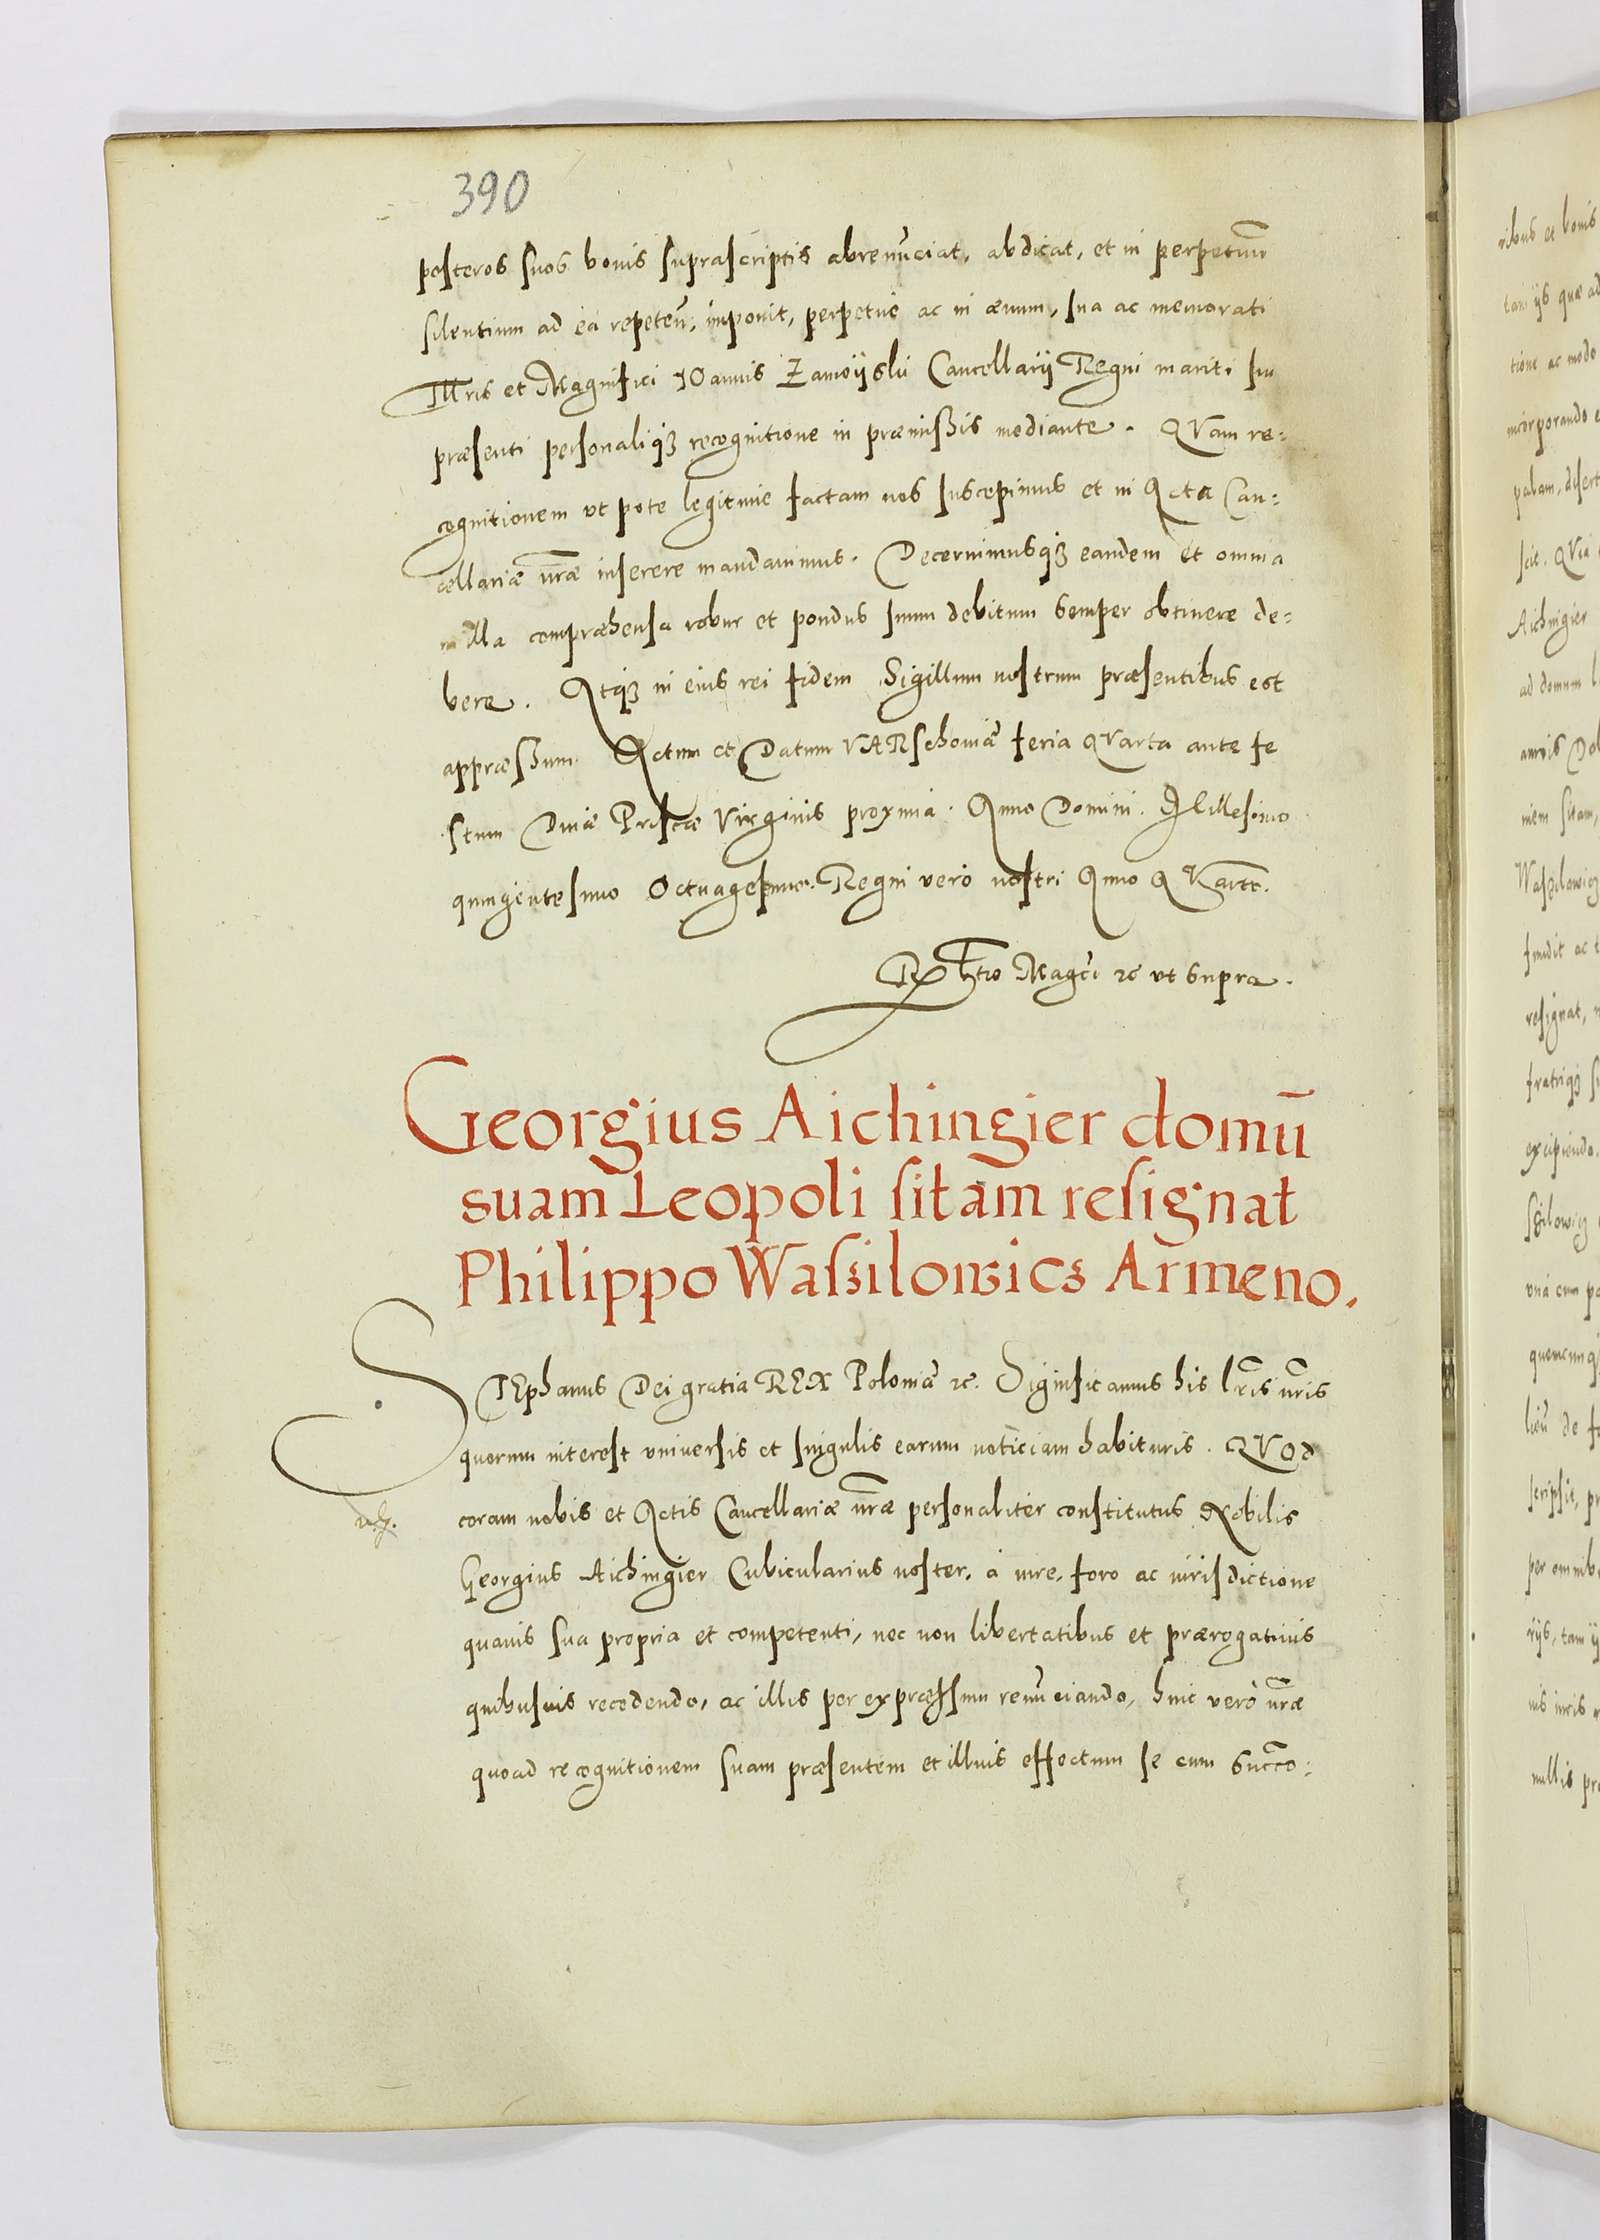 390
posteros suos bonis suprascriptis abrenūciat, abdicat, et in perpetuū
silentium ad ea repeteñ, imponit, perpetue ac in ævum, sua ac memorati
Illris et Magnifici IOannis Zamoijskii Cancellarij Regni mariti sui
præsenti personaliqȝ recognitione in præmissis mediante. QVam re=
cognitionem vt pote legitime factam nos suscepimus et in Acta Can=
cellariæ nr̃æ inserere mandauimus. Decernimusqȝ eandem et omnia
in illa compræhensa robur et pondus suum debitum semper obtinere de=
bere. Atqȝ in eius rei fidem Sigillum nostrum præsentibus est
appræssum. Actum et Datum VARschouiæ feria qVarta ante fe
stum Diuæ Priscæ Virginis proxima. Anno Domini. Millesimo
quingentesimo Octuagesimo. Regni vero nostri Anno qVarto.
Rñtio Magci ꝛc vt supra.
Georgius Aichingier domū
suam Leopoli sitam resignat
Philippo Wassilowicz Armeno.
STEphanus Dei gratia REX Poloniæ ꝛc. Significamus his lr̃is nr̃is
quorum interest vniuersis et singulis earum noticiam habituris. QVOd
coram nobis et Actis Cancellariæ nr̃æ personaliter constitutus Nobilis
Georgius Aichingier Cubicularius noster, à iure, foro ac iurisdictione
quauis sua propria et competenti, nec non libertatibus et prærogatiuis
quibusuis recedendo, ac illis per expræssum renūciando, huic verò nr̃æ
quoad recognitionem suam præsentem et illius effectum se cum succo=
ribus et bonis
tam ijs quæ ad
tione ac modo
incorporando e
palam, disert
scit. QVia
Aichingier
ad domum l
auris Dol
niem sitam,
Wassilowicz
fundit ac t
resignat,
fratriqȝ s
excipiendo.
ssilowicz
vnà cum po
quemcunqȝ
scripsit, pr
per omnibu
rijs, tam ij
uis iuris
nullis pr